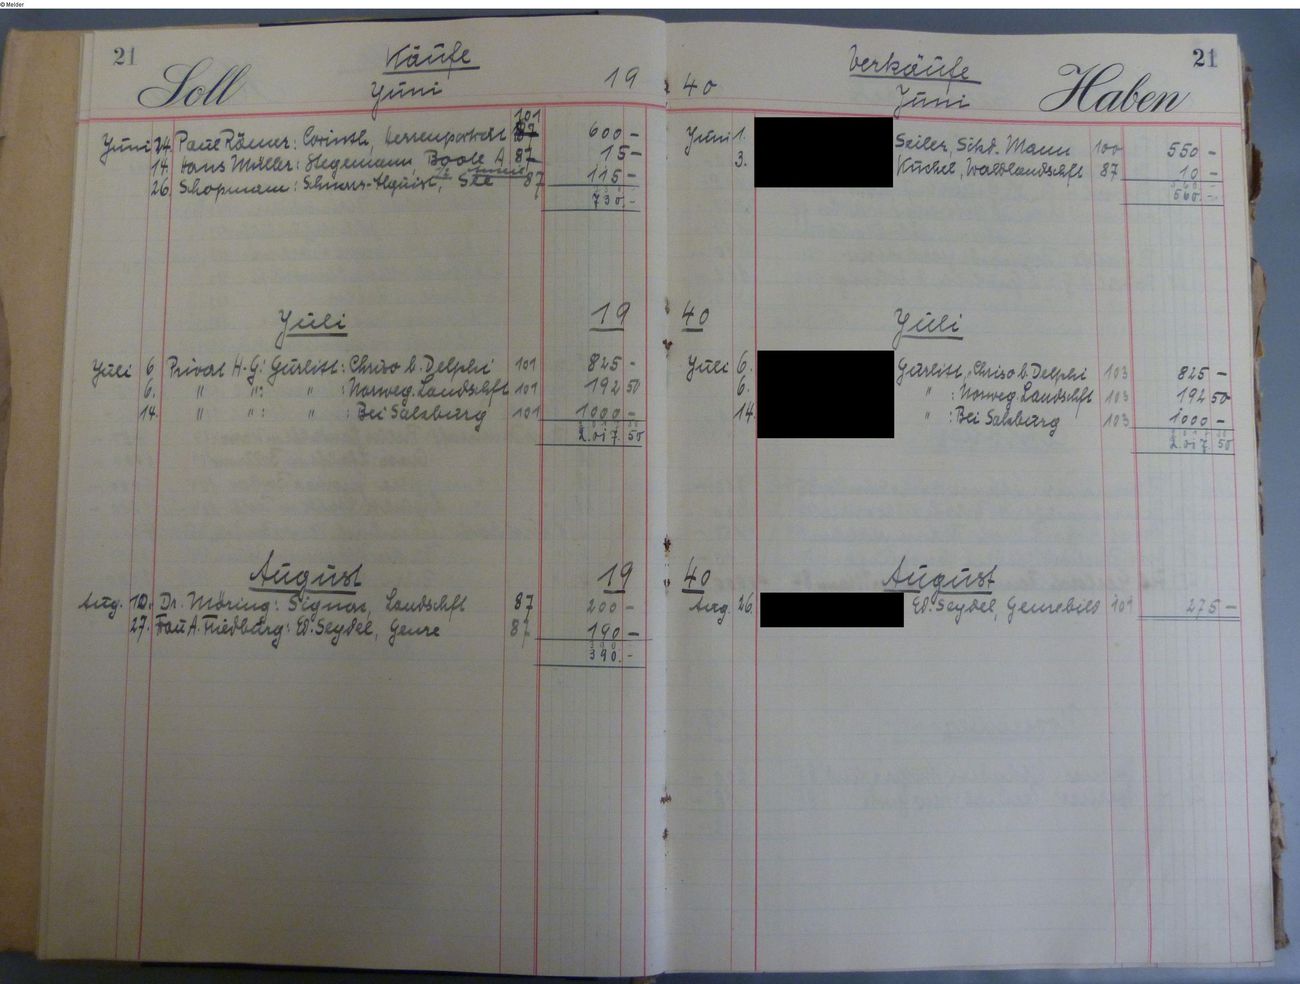 © Melder
21
Soll
Käufe
Juni
19
101
Juni 24. Paul Römer: Corinth, Herrenportrait 600 –
14. Hans Müller: Stegemann, Boote A. 87 15 –
26. Schopmann: Schnars-Alquist, See 87 115 –
730.–
Juli 19
Juli 6 Privat H. G: Gurlitt: Chriso b. Delphi 101 825 –
6. " ": " : Norweg. Landschft 101 192 50
14. " ": " : Bei Salzburg 101 1000 –
2.017.50
August 19
Aug. 10. Dr. Möring: Signac, Landschft 87 200 –
27. Frau A. Friedburg: Ed. Seydel, Genre 87 190 –
390.–
40
Verkäufe
Juni
Haben
21
Juni 1. Seiler, Sitzd. Mann 100 550 –
3. Küchel, Waldlandschft 87 10 –
560.–
40 Juli
Juli 6. Gurlitt, Chriso b. Delphi 103 825 –
6. " : Norweg. Landschft 103 192 50
14. " : Bei Salzburg 103 1000 –
2.017.50
40 August
Aug. 26. Ed. Seydel, Genrebild 101 275 –